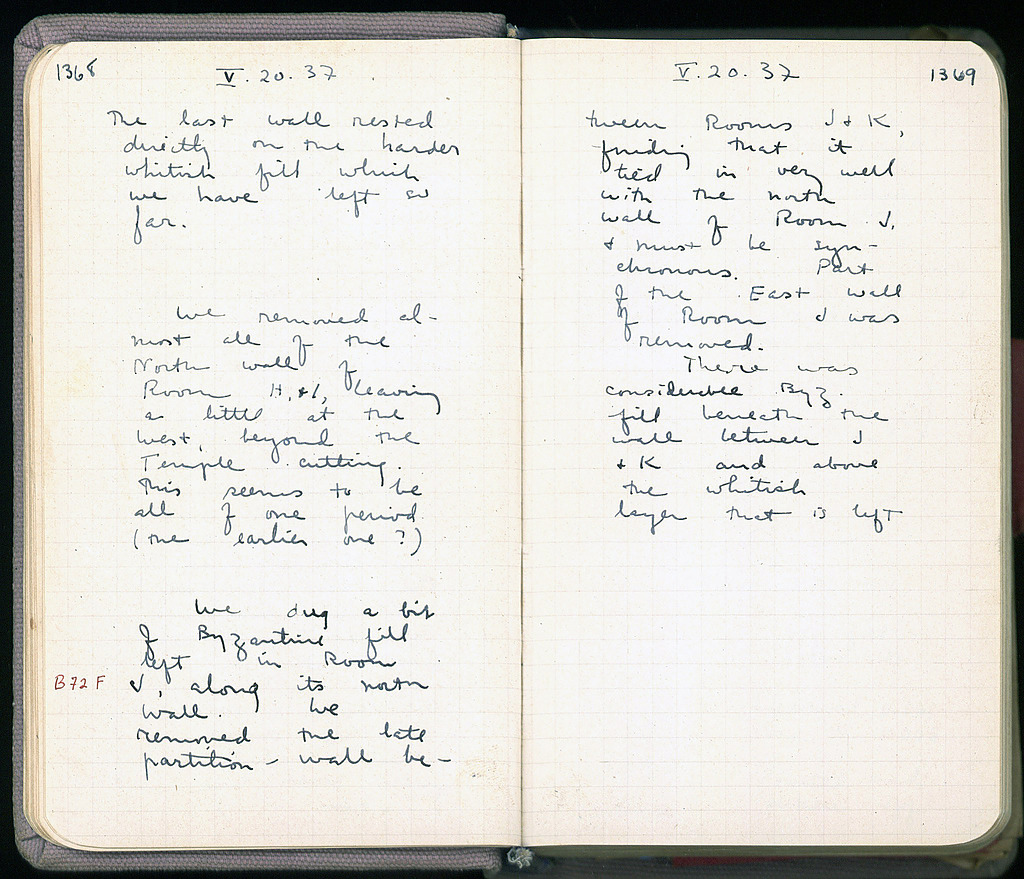 1368
V. 20. 37
The last wall rested
directly on the harder
whitish fill which
we have left so
far.
We removed al-
most all of the
North wall of
Room H, & I, leaving
a little at the
West, beyond the
Temple cutting.
This seems to be
all of one period
(the earlier one?)
We dug a bit
of Byzantine fill
left in Room
B72F
J, along its north
wall. We
removed the late
partition - wall be-
V. 20. 37
1369
tween Rooms J & K,
finding that it
tied in very well
with the north
wall of Room J,
& must be syn-
chronous. Part
of the East wall
of Room J was
removed.
There was
considerable Byz.
fill beneath the
wall between J
& K and above
the whitish
layer that is left